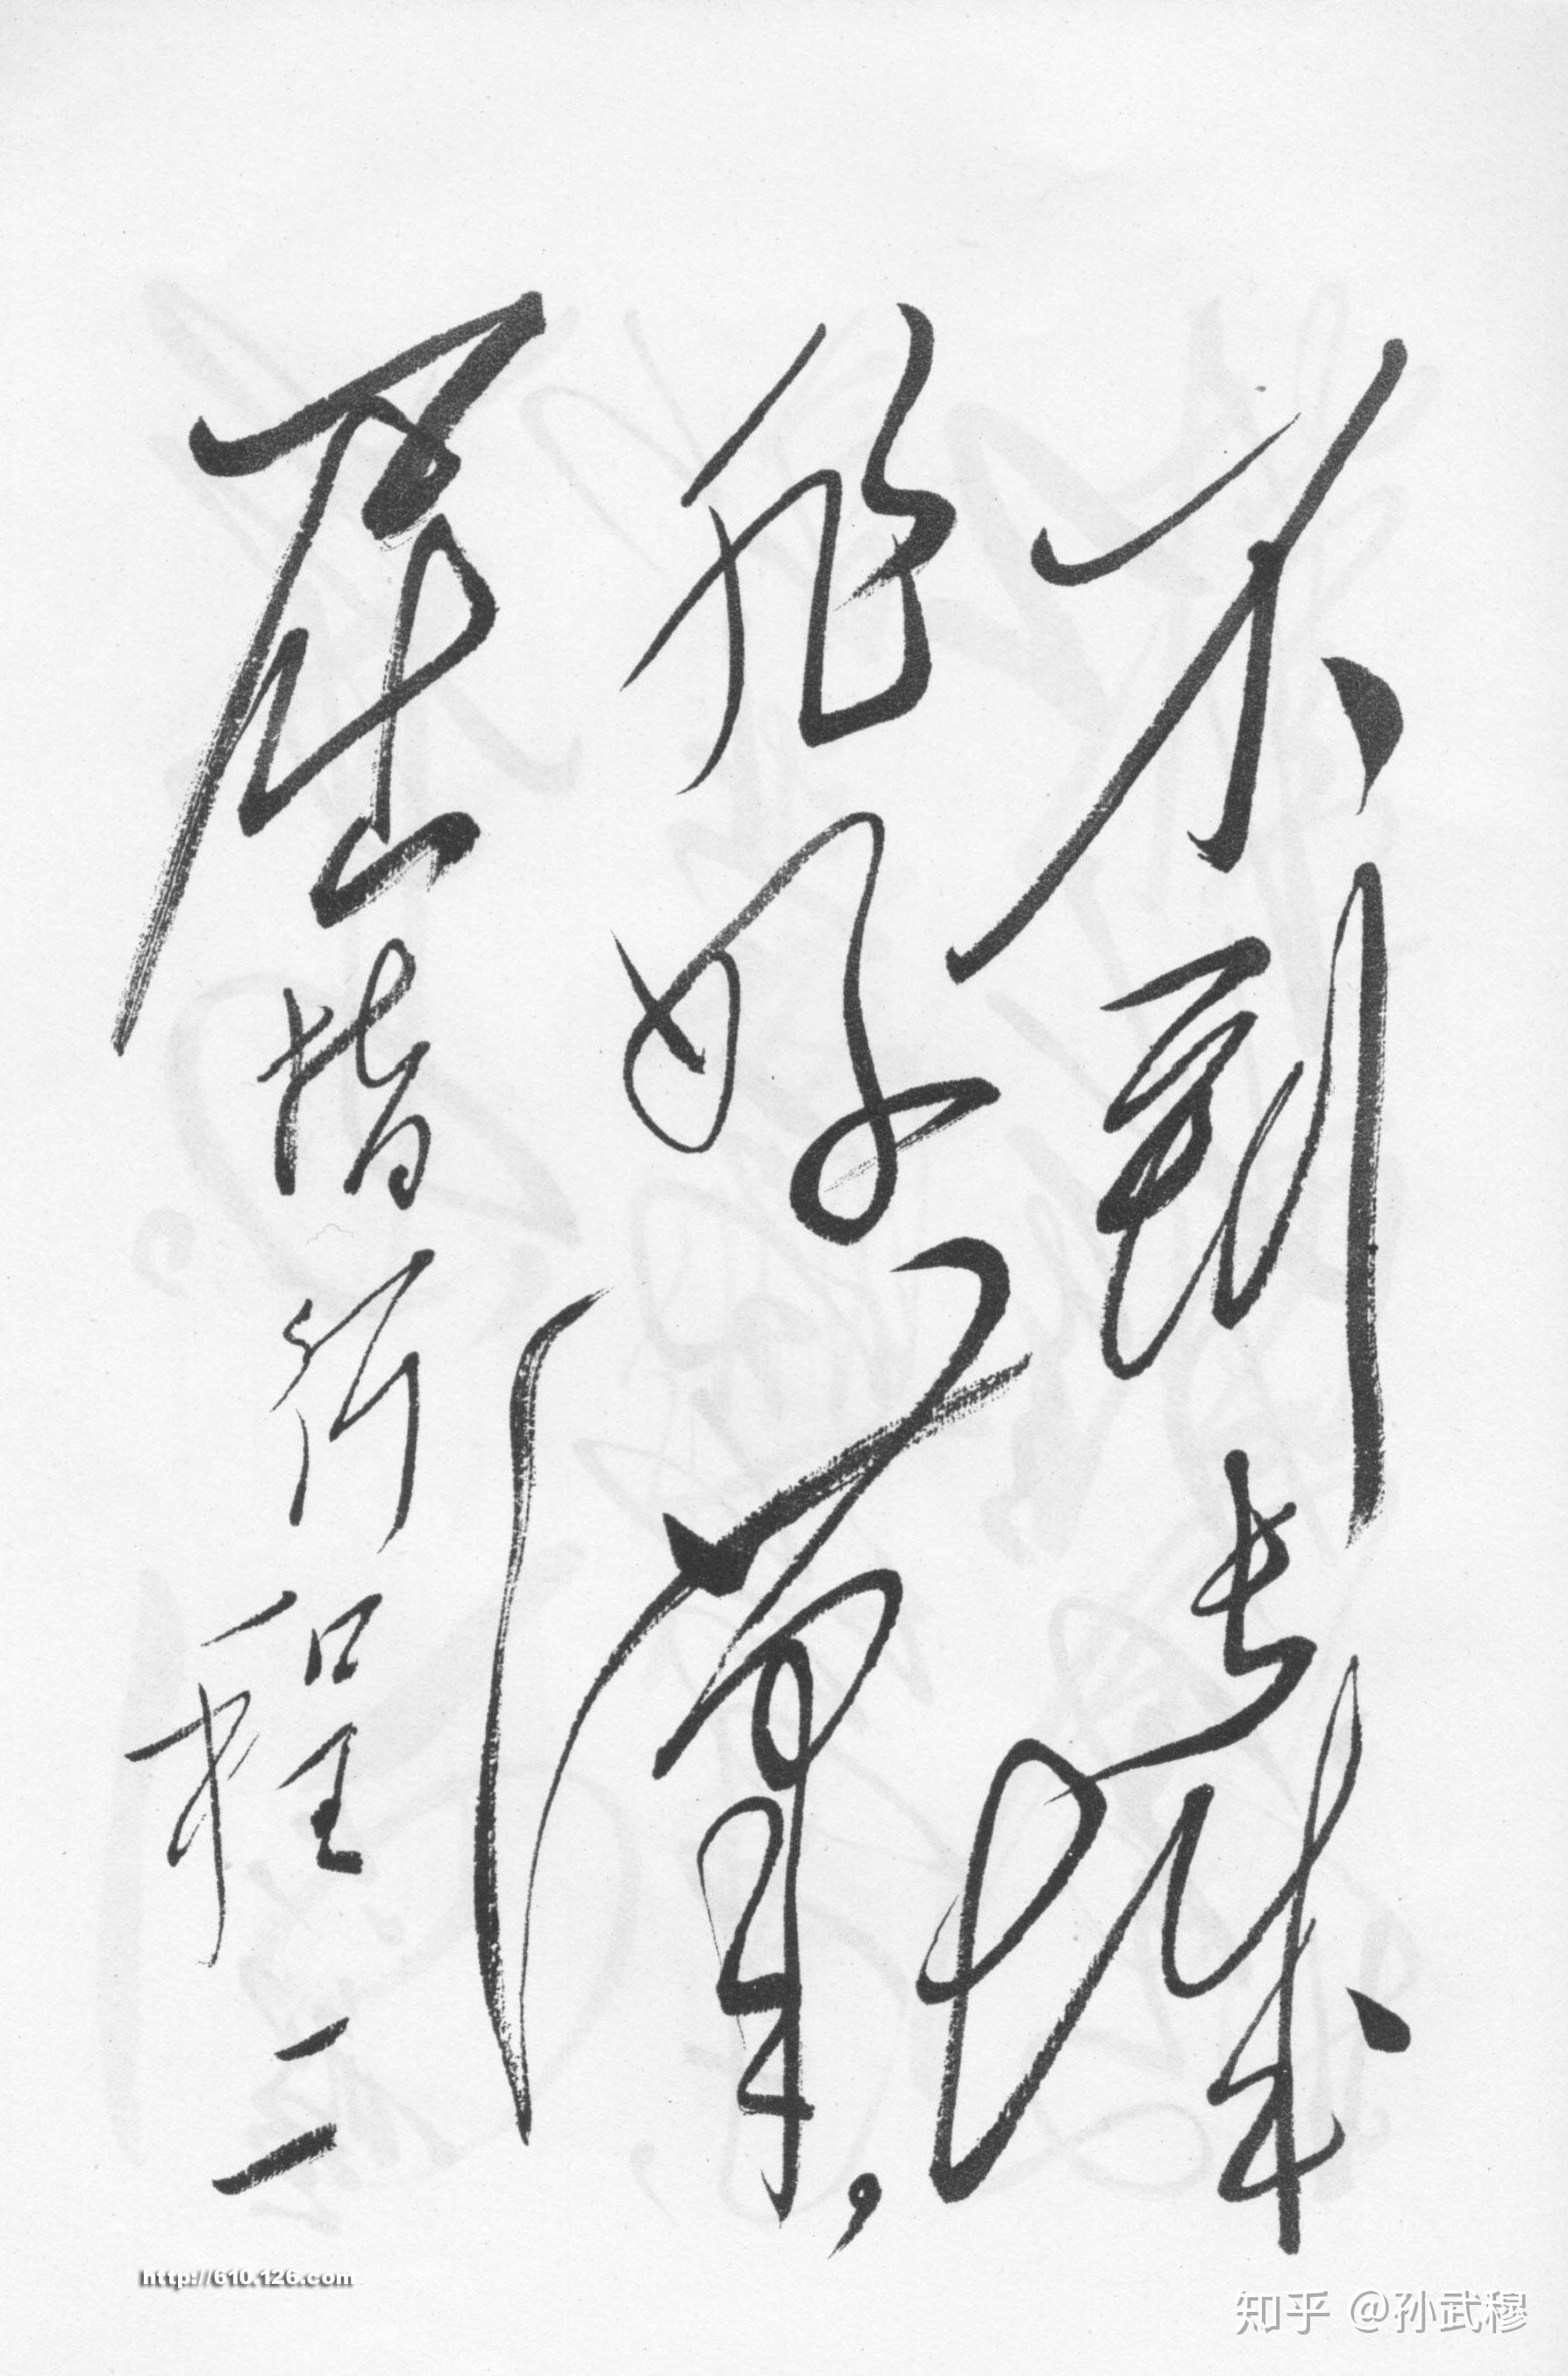 不到长城
非好汉，
屈指行程二
http://610.126.com
知乎 @孙武穆